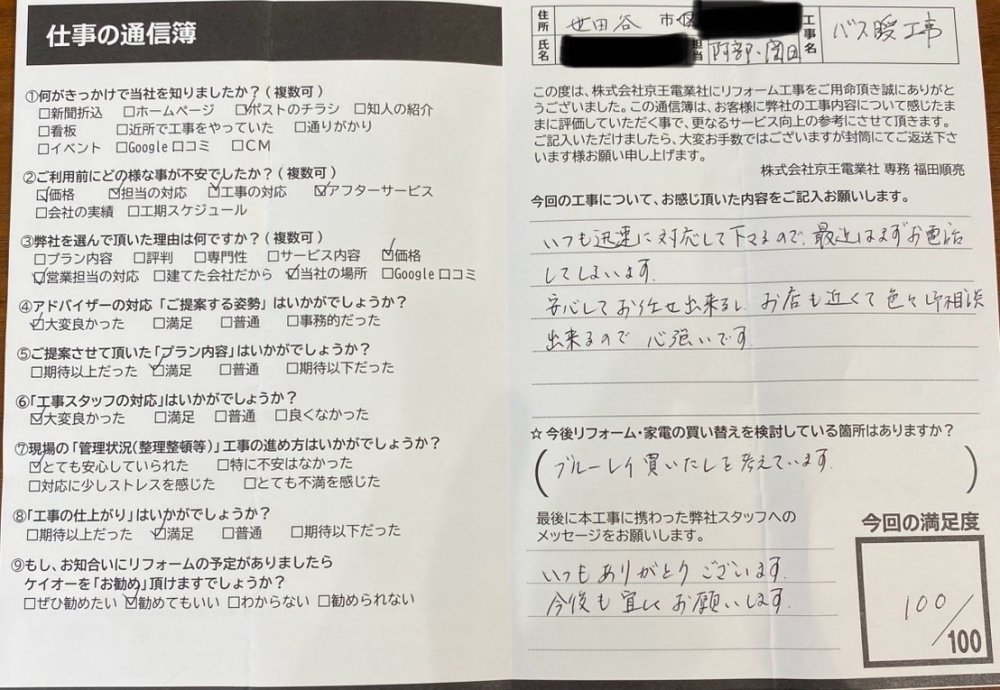 仕事の通信簿
①何がきっかけで当社を知りましたか?(複数可)
□新聞折込 □ホームページ ☑ポストのチラシ □知人の紹介
□看板 □近所で工事をやっていた □通りがかり
□イベント □Google口コミ □CM
②ご利用前にどの様な事が不安でしたか?(複数可)
☑価格 ☑担当の対応 ☑工事の対応 ☑アフターサービス
□会社の実績 □工期スケジュール
③弊社を選んで頂いた理由は何ですか?(複数可)
□プラン内容 □評判 □専門性 □サービス内容 ☑価格
☑営業担当の対応 □建てた会社だから ☑当社の場所 □Google口コミ
④アドバイザーの対応「ご提案する姿勢」はいかがでしょうか?
☑大変良かった □満足 □普通 □事務的だった
⑤ご提案させて頂いた「プラン内容」はいかがでしょうか?
□期待以上だった ☑満足 □普通 □期待以下だった
⑥「工事スタッフの対応」はいかがでしょうか?
☑大変良かった □満足 □普通 □良くなかった
⑦現場の「管理状況(整理整頓等)」工事の進め方はいかがでしょうか?
☑とても安心していられた □特に不安はなかった
□対応に少しストレスを感じた □とても不満を感じた
⑧「工事の仕上がり」はいかがでしょうか?
□期待以上だった ☑満足 □普通 □期待以下だった
⑨もし、お知合いにリフォームの予定がありましたら
ケイオーを「お勧め」頂けますでしょうか?
□ぜひ勧めたい ☑勧めてもいい □わからない □勧められない
住所 世田谷 市区
氏名 担当 阿部・窪田
工事名 バス暖工事
この度は、株式会社京王電業社にリフォーム工事をご用命頂き誠にありがとうございました。この通信簿は、お客様に弊社の工事内容について感じた
ままに評価していただく事で、更なるサービス向上の参考にさせて頂きます。
ご記入いただけましたら、大変お手数ではございますが封筒にてご返送下さいます様お願い申し上げます。
株式会社京王電業社 専務 福田順亮
今回の工事について、お感じ頂いた内容をご記入お願いします。
いつも迅速に対応して下さるので、最近はまずお電話
してしまいます。
安心してお任せ出来るし、お店も近くて色々御相談
出来るので心強いです。
☆今後リフォーム・家電の買い替えを検討している箇所はありますか?
(ブルーレイ買いたしを考えています。)
最後に本工事に携わった弊社スタッフへの
メッセージをお願いします。
いつもありがとうございます。
今後も宜しくお願いします。
今回の満足度
100/100